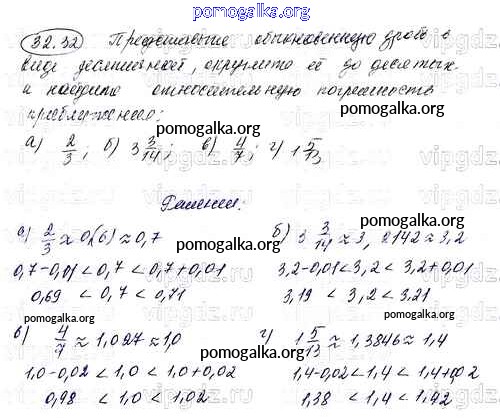 pomogalka.org
32.32 Представьте обыкновенную дробь в
виде десятичной, округлите её до десятых
и найдите относительную погрешность
приближения:
pomogalka.org
а) 2/3; б) 3 3/14; в) 4/7; г) 1 5/13
Решение.
pomogalka.org
а) 2/3 ≈ 0,(6) ≈ 0,7 б) 3 3/14 ≈ 3,2142 ≈ 3,2
pomogalka.org pomogalka.org
0,7-0,01 < 0,7 < 0,7+0,01 3,2-0,01 < 3,2 < 3,2+0,01
0,69 < 0,7 < 0,71 3,19 < 3,2 < 3.21
pomogalka.org pomogalka.org
в) 4/7 ≈ 1,027 ≈ 1,0 г) 1 5/13 ≈ 1,3846 ≈ 1,4
pomogalka.org pomogalka.org
1,0-0,02 < 1,0 < 1,0+0,02 1,4-0,02 < 1,4 < 1,4+0,02
0,98 < 1,0 < 1,02 1,38 < 1,4 < 1,42
pomogalka.org